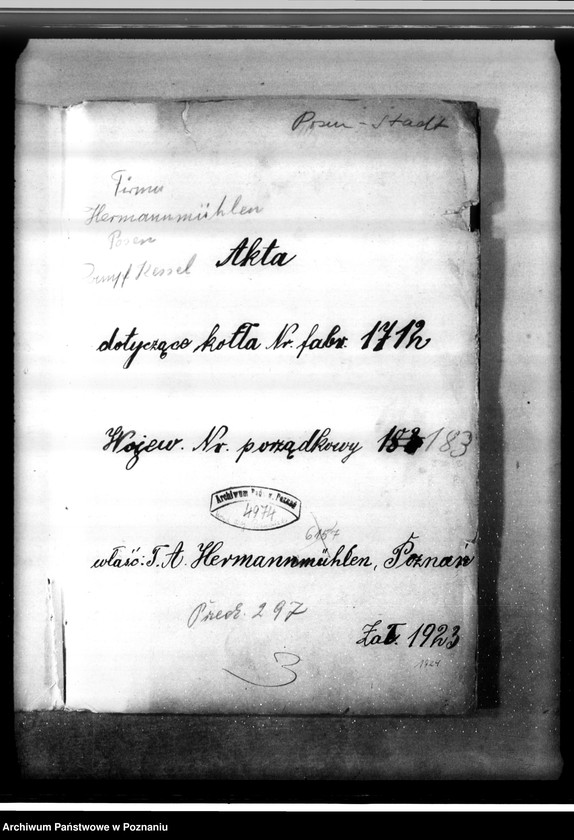 Posen-Stadt
Firma
Hermannmühlen
Posen
Dampf Kessel
Akta
dotyczące kotła Nr. fabr. 1712
Wojew. Nr. porządkowy 183 183
Archiwum Państ. w. Poznań
4974
6157
właść: T. A. Hermannmühlen, Poznań
297
Zał. 1923
1924
3
Archiwum Państwowe w Poznaniu